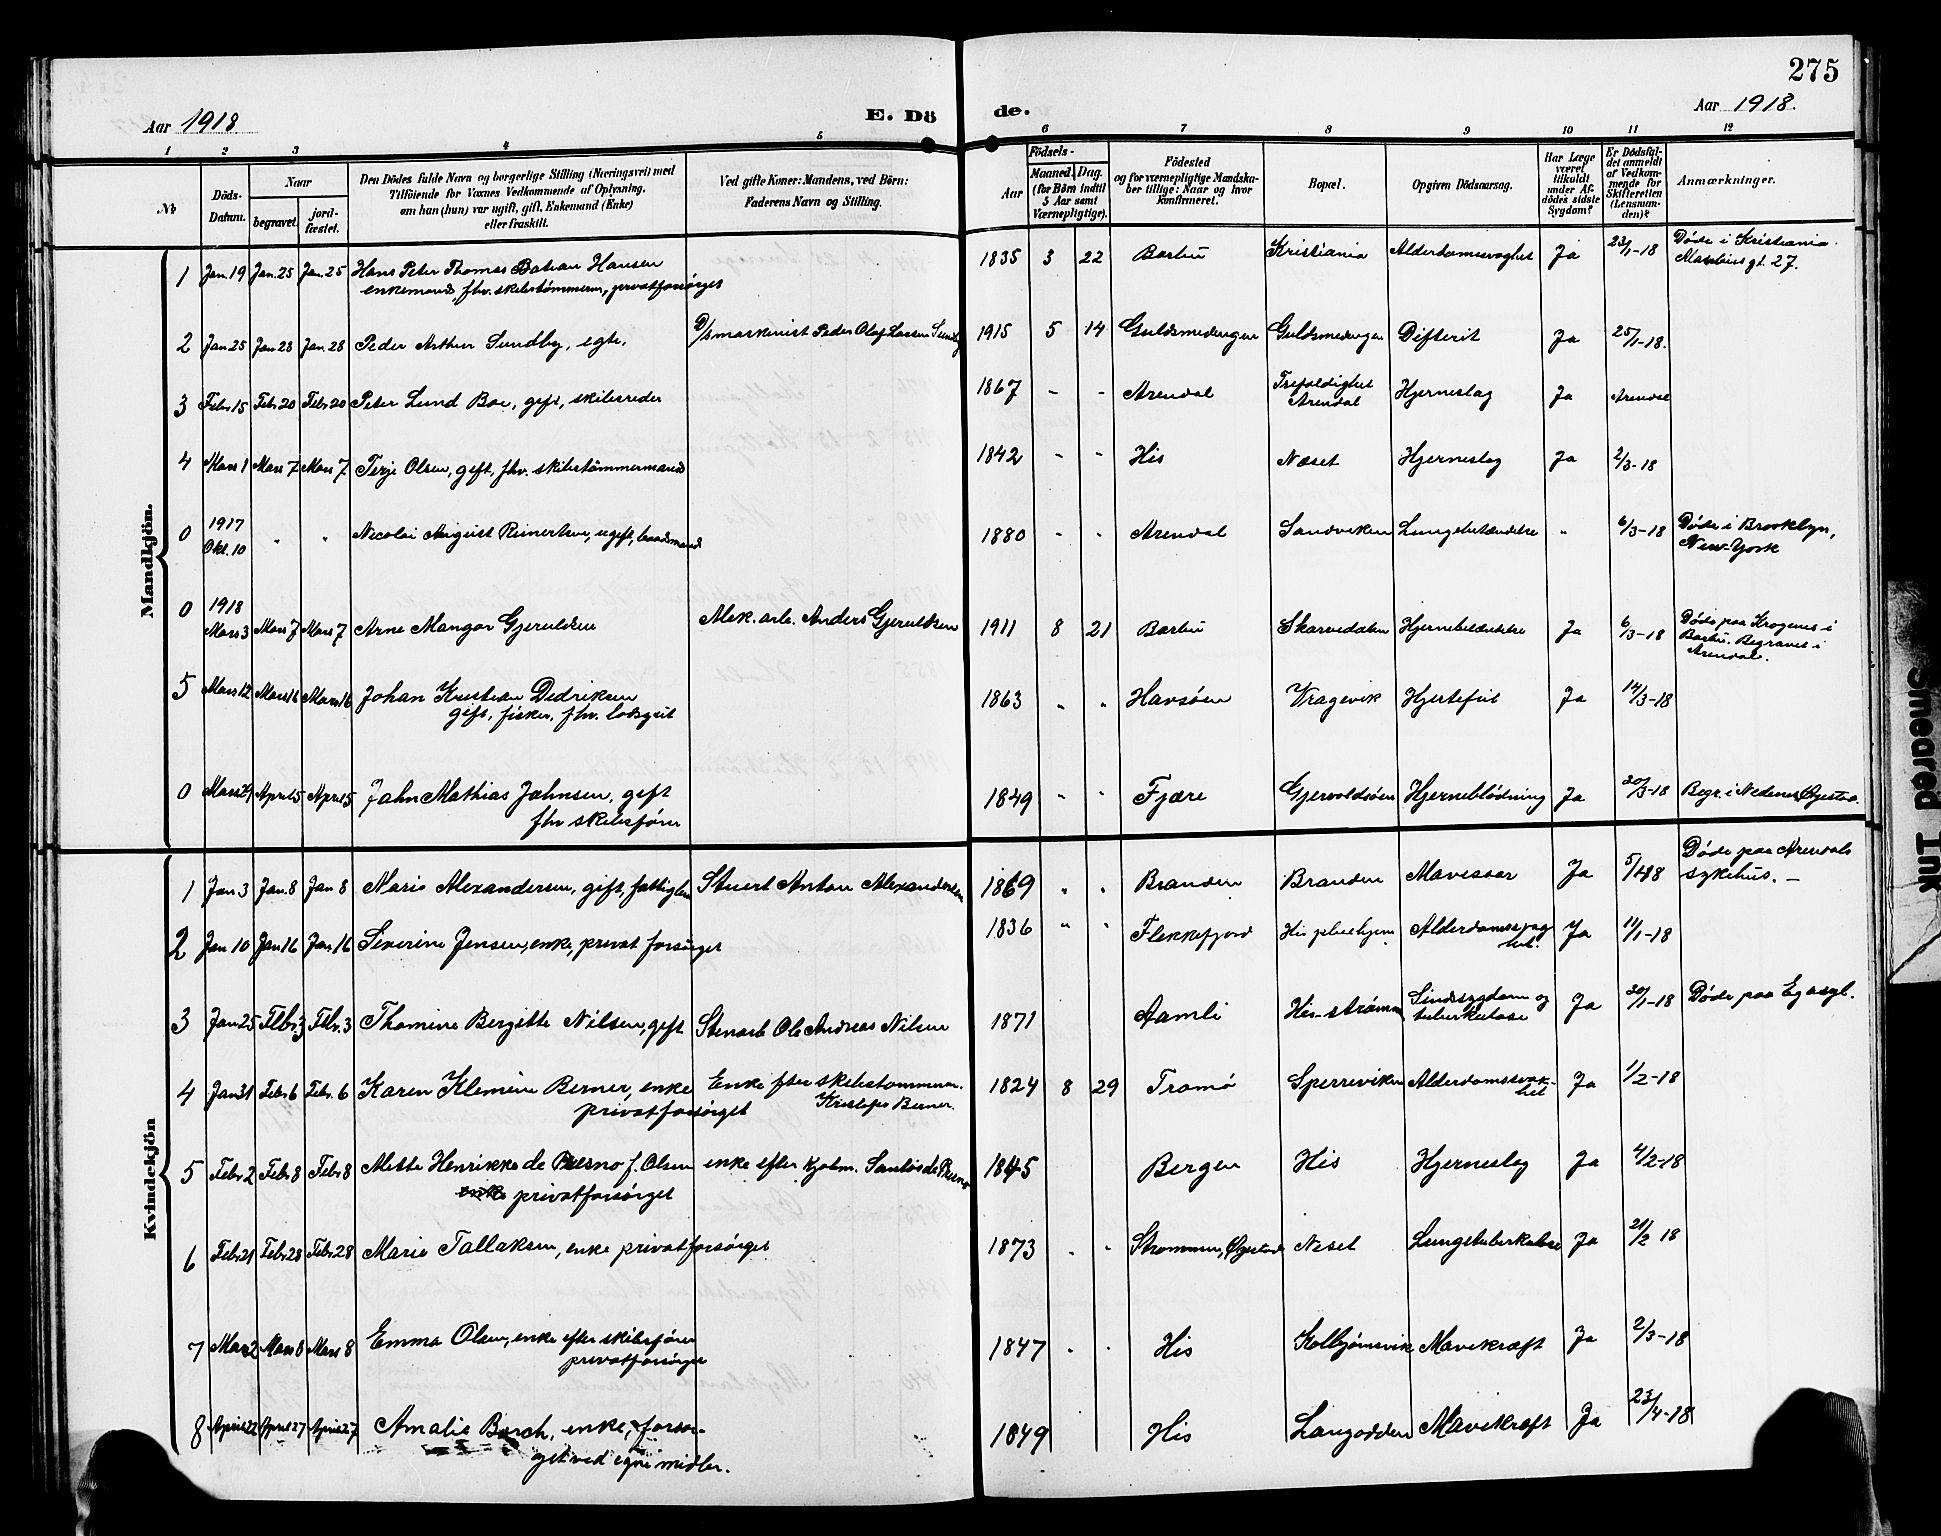 275
Aar 1918
E. Dö
de.
Aar 1918.
1 2 3 4 5 6 7 8 9 10 11 12
№
Döds-
Datum.
Naar
begravet.
jord-
fæstet.
Den Dödes fulde Navn og borgerlige Stilling (Næringsvei) med
Tilföiende for Voxnes Vedkommende af Oplysning,
om han (hun) var ugift, gift, Enkemand (Enke)
eller fraskilt.
Ved gifte Koner: Mandens, ved Börn:
Faderens Navn og Stilling.
Födsels-
Aar
Maaned. Dag.
(for Börn indtil
5 Aar samt
Værnepligtige).
Födested
og for værnepligtige Mandska-
ber tillige: Naar og hvor
konfirmeret.
Bopæl.
Opgiven Dödsaarsag.
Har Læge
været
tilkaldt
under Af-
dödes sidste
Sygdom?
Er Dödsfal-
det anmeldt
af Vedkom-
mende for
Skifteretten
(Lensman-
den)?
Anmærkninger.
Mandkjön.
1 Jan. 19 Jan. 25 Jan. 25 Hans Peter Thomas Hansen 1835 3 22 Barbu Kristiania Alderdomssvaghet Ja 23/1-18 Døde i Kristiania.
enkemand, fhv. skibstømmerm., privatforsørget gt. 27.
2 Jan. 25 Jan. 28 Jan. 28 Peder Arthur Sundby, egte. D/s maskinist Peder Olaf Larsen Sundby 1915 5 14 Guldsmedengen Guldsmedengen Difterit Ja 25/1-18.
3 Febr. 15 Febr. 20 Febr. 20 Peter Lund Boe, gift, skibsreder 1867 - - Arendal Trefoldighet Arendal Hjerneslag Ja Arendal
4 Mars 1 Mars 7 Mars 7 Terje Olsen, gift, fhv. skibstømmermand 1842 - - His Næset Hjerneslag Ja 2/3-18
0 1917 Okt. 10 " " Nicolai August Reinertsen, ugift, baadsmand 1880 - - Arendal Sandviken Lungebetændelse " 6/3-18 Døde i Brooklyn,
New-York
0 1918 Mars 3 Mars 7 Mars 7 Arne Mangor Gjeruldsen Mek. arb. Anders Gjeruldsen 1911 8 21 Barbu Skarvedalen Hjernebetændelse Ja 6/3-18 Døde paa Krogenes i
Barbu. Begravet i
Arendal.
5 Mars 12 Mars 16 Mars 16 Johan Kristian Dedriksen 1863 " " Havsøen Vragevik Hjertefeil Ja 14/3-18
gift, fisker, fhv. losgut
0 Mars 29 April 5 April 5 Jahn Mathias Jahnsen, gift 1849 " " Fjære Gjervoldsøen Hjerneblødning Ja 30/3-18 Begr. i Nedenes, Øiestad.
fhv skibsfører
Kvindekjön
1 Jan. 3 Jan. 8 Jan 8 Maris Alexandersen, gift, fattiglem Stuert Anton Alexandersen 1869 " " Branden Branden Mavesaar Ja 5/1-18 Døde paa Arendals
sykehus. -
2 Jan 10 Jan 16 Jan. 16 Severine Jensen, enke, privat forsørget 1836 " " Flekkefjord His pleiehjem Alderdomssvag
het. Ja 11/1-18
3 Jan 25 Febr. 3 Febr. 3 Thomine Bergitte Nilsen, gift Stenarb Ole Andreas Nilsen 1871 Aamli His-strømm Sindssygdom og
tuberkulose Ja 30/1-18 Døde paa Eg asyl.
4 Jan 31 Febr. 6 Febr. 6 Karen Klemine Berner, enke Enke efter skibstømmerm. 1824 8 29 Tromø Sperreviken Alderdomssvak-
het Ja 1/2-18
privatforsørget Kristofer Berner.
5 Febr. 2 Febr. 8 Febr. 8 Mette Henrikke de Presno f. Olsen enke efter kjøbm. Santos de Presno 1845 Bergen His Hjerneslag Ja 4/2-18
enke privatforsørget
6 Febr. 21 Febr. 28 Febr. 28 Marie Tallaksen, enke privatforsørget 1873 " " Strømmen, Øiestad Neset Lungetuberkulose Ja 21/2 18
7 Mars 2 Mars 8 Mars 8 Emma Olsen, enke efter skibsfører 1847 " " His Kolbjørnsvik Mavekræft Ja 2/3-18
privatforsørget
8 April 22 April 27 April 27 Amalie Borch, enke, forsør- 1849 His Langodden Mavekræft Ja 23/4-18
get ved egne midler.
Smeared Ink